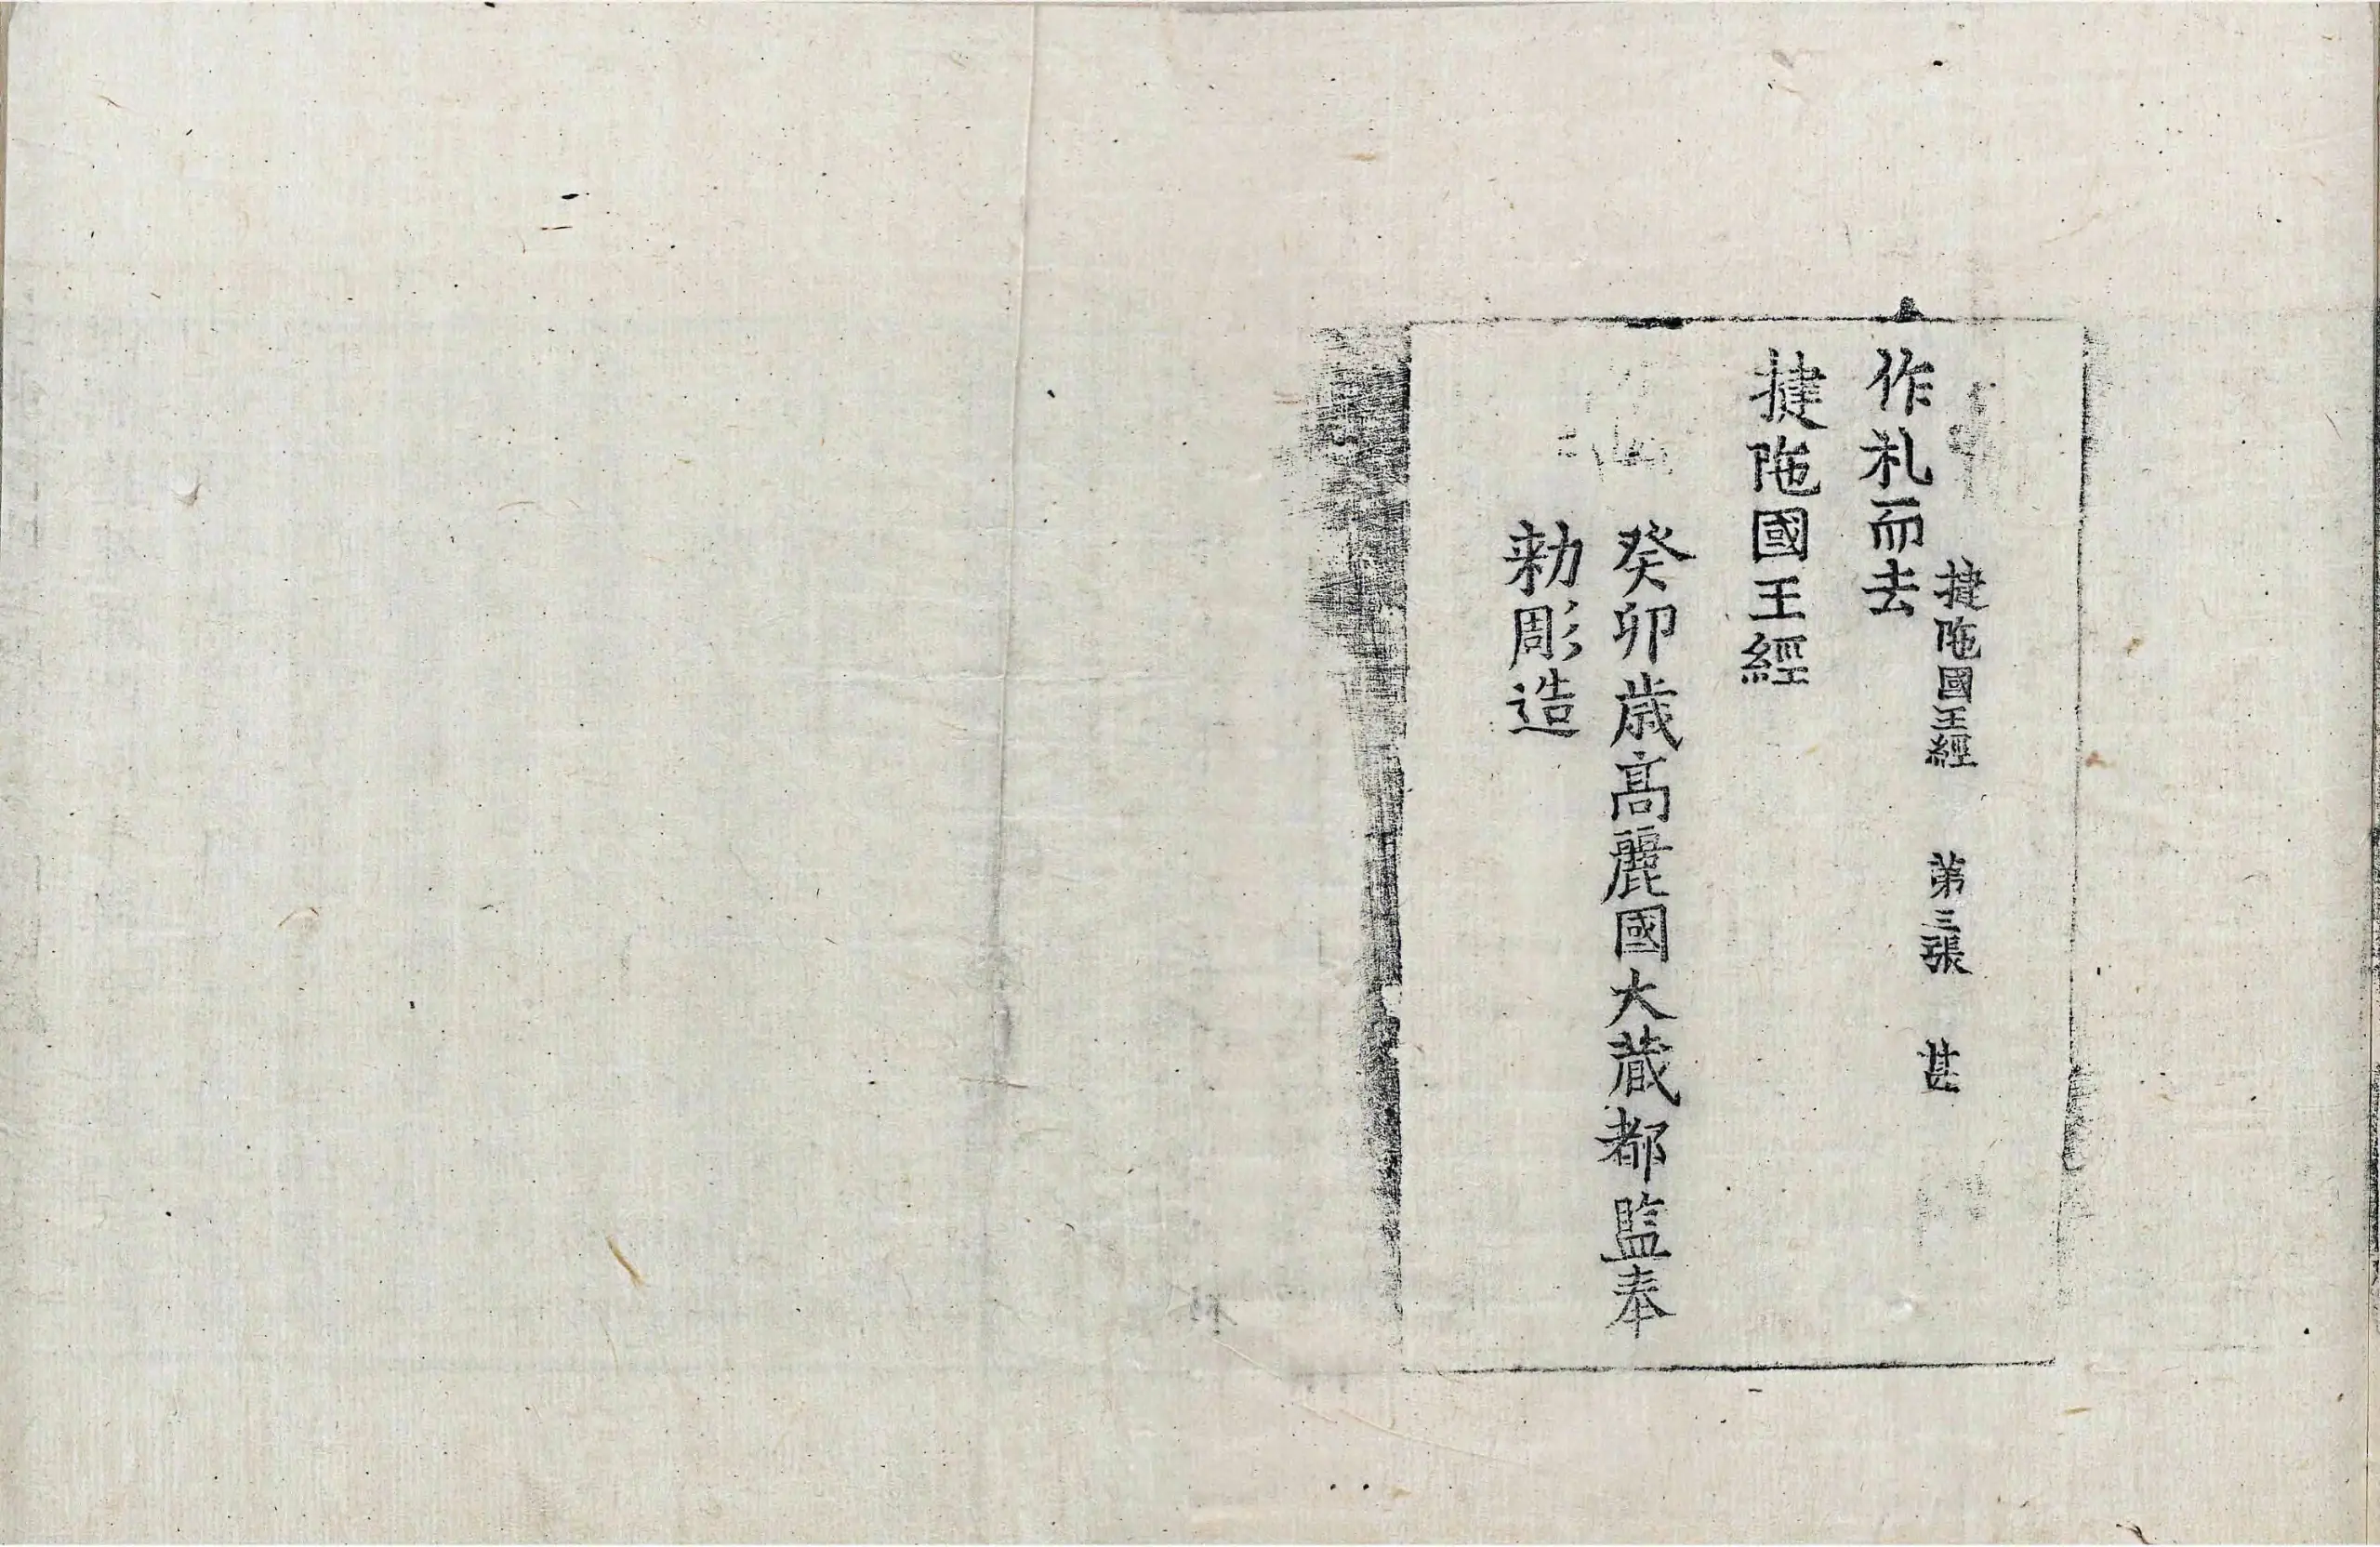 揵陁國王經　第三張　甚
作礼而去
揵陁國王經
癸卯歲高麗國大藏都監奉
勑彫造